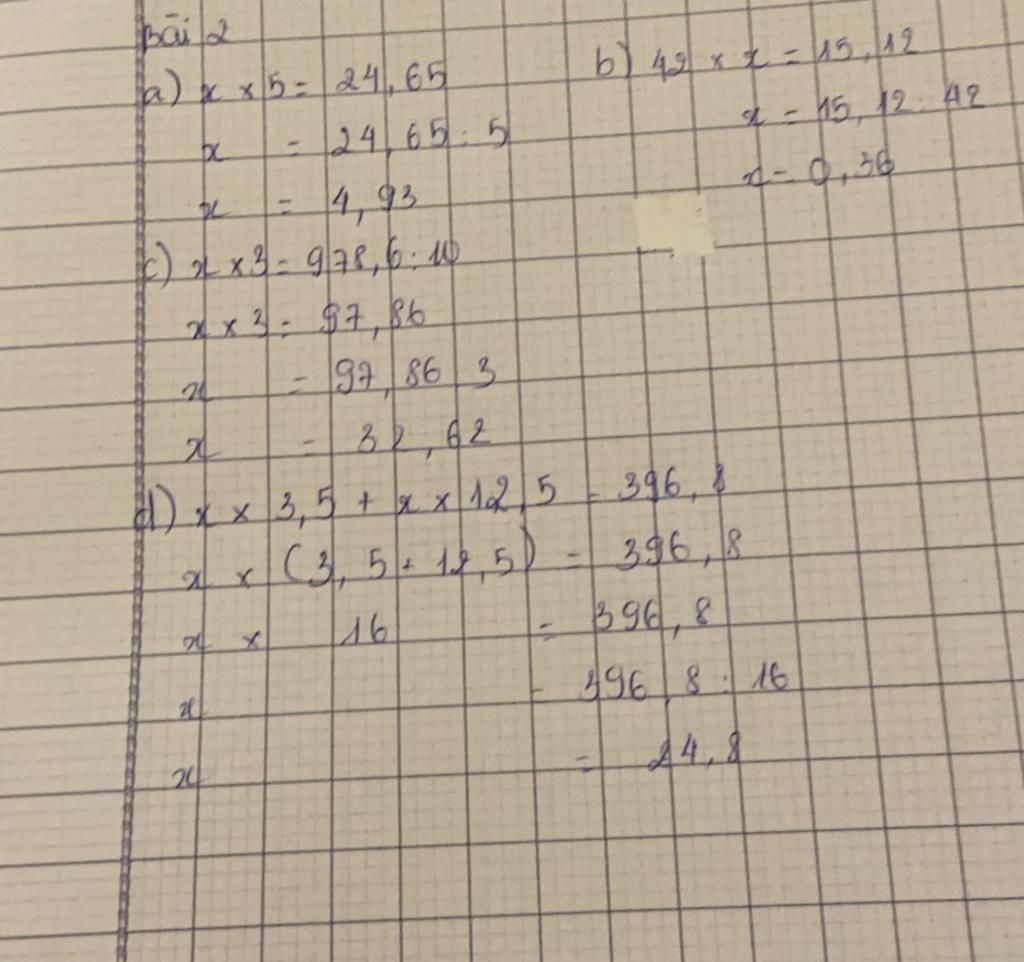 Bài 2
a) x × 5 = 24,65
x = 24,65 : 5
x = 4,93
b) 42 × x = 15,12
x = 15,12 : 42
x = 0,36
c) x × 3 = 978,6 : 10
x × 3 = 97,86
x = 97,86 3
x = 32,62
d) x × 3,5 + x × 12,5 = 396,8
x × (3,5 + 12,5) = 396,8
x × 16 = 396,8
x = 396,8 : 16
x = 24,8